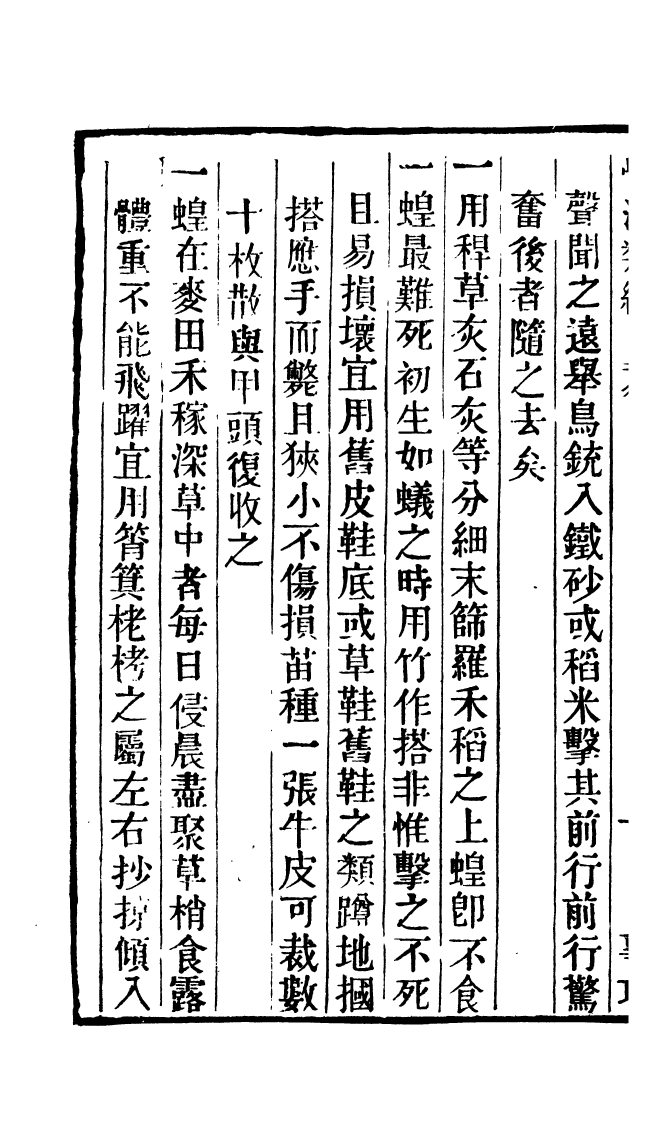 聲聞之遠舉鳥銃入鐵砂或稻米擊其前行前行驚
奮後者隨之去矣
一用稈草灰石灰等分細末篩羅禾稻之上蝗卽不食
一蝗最難死初生如蟻之時用竹作搭非惟擊之不死
且易損壞宜用舊皮鞋底或草鞋舊鞋之類蹲地摑
搭應手而斃且狹小不傷損苗種一張牛皮可裁數
十枚散與甲頭復收之
一蝗在麥田禾稼深草中者每日侵晨盡聚草梢食露
體重不能飛躍宜用筲箕栲栳之屬左右抄掠傾入